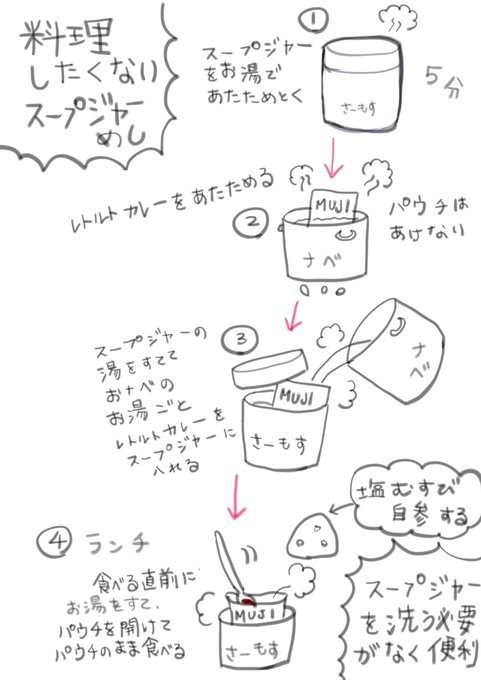 料理
したくない
スープジャー
めし
①
スープジャー
をお湯で
あたためとく
さーもす
5分
レトルトカレーをあたためる
②
MUJI
ナベ
パウチは
あけない
③
スープジャーの
湯をすてて
おナベの
お湯ごと
レトルトカレーを
スープジャーに
入れる
ナベ
MUJI
さーもす
④ ランチ
食べる直前に
お湯をすて、
パウチを開けて
パウチのまま食べる
MUJI
さーもす
塩むすび
自参する
スープジャー
を洗う必要
がなく便利